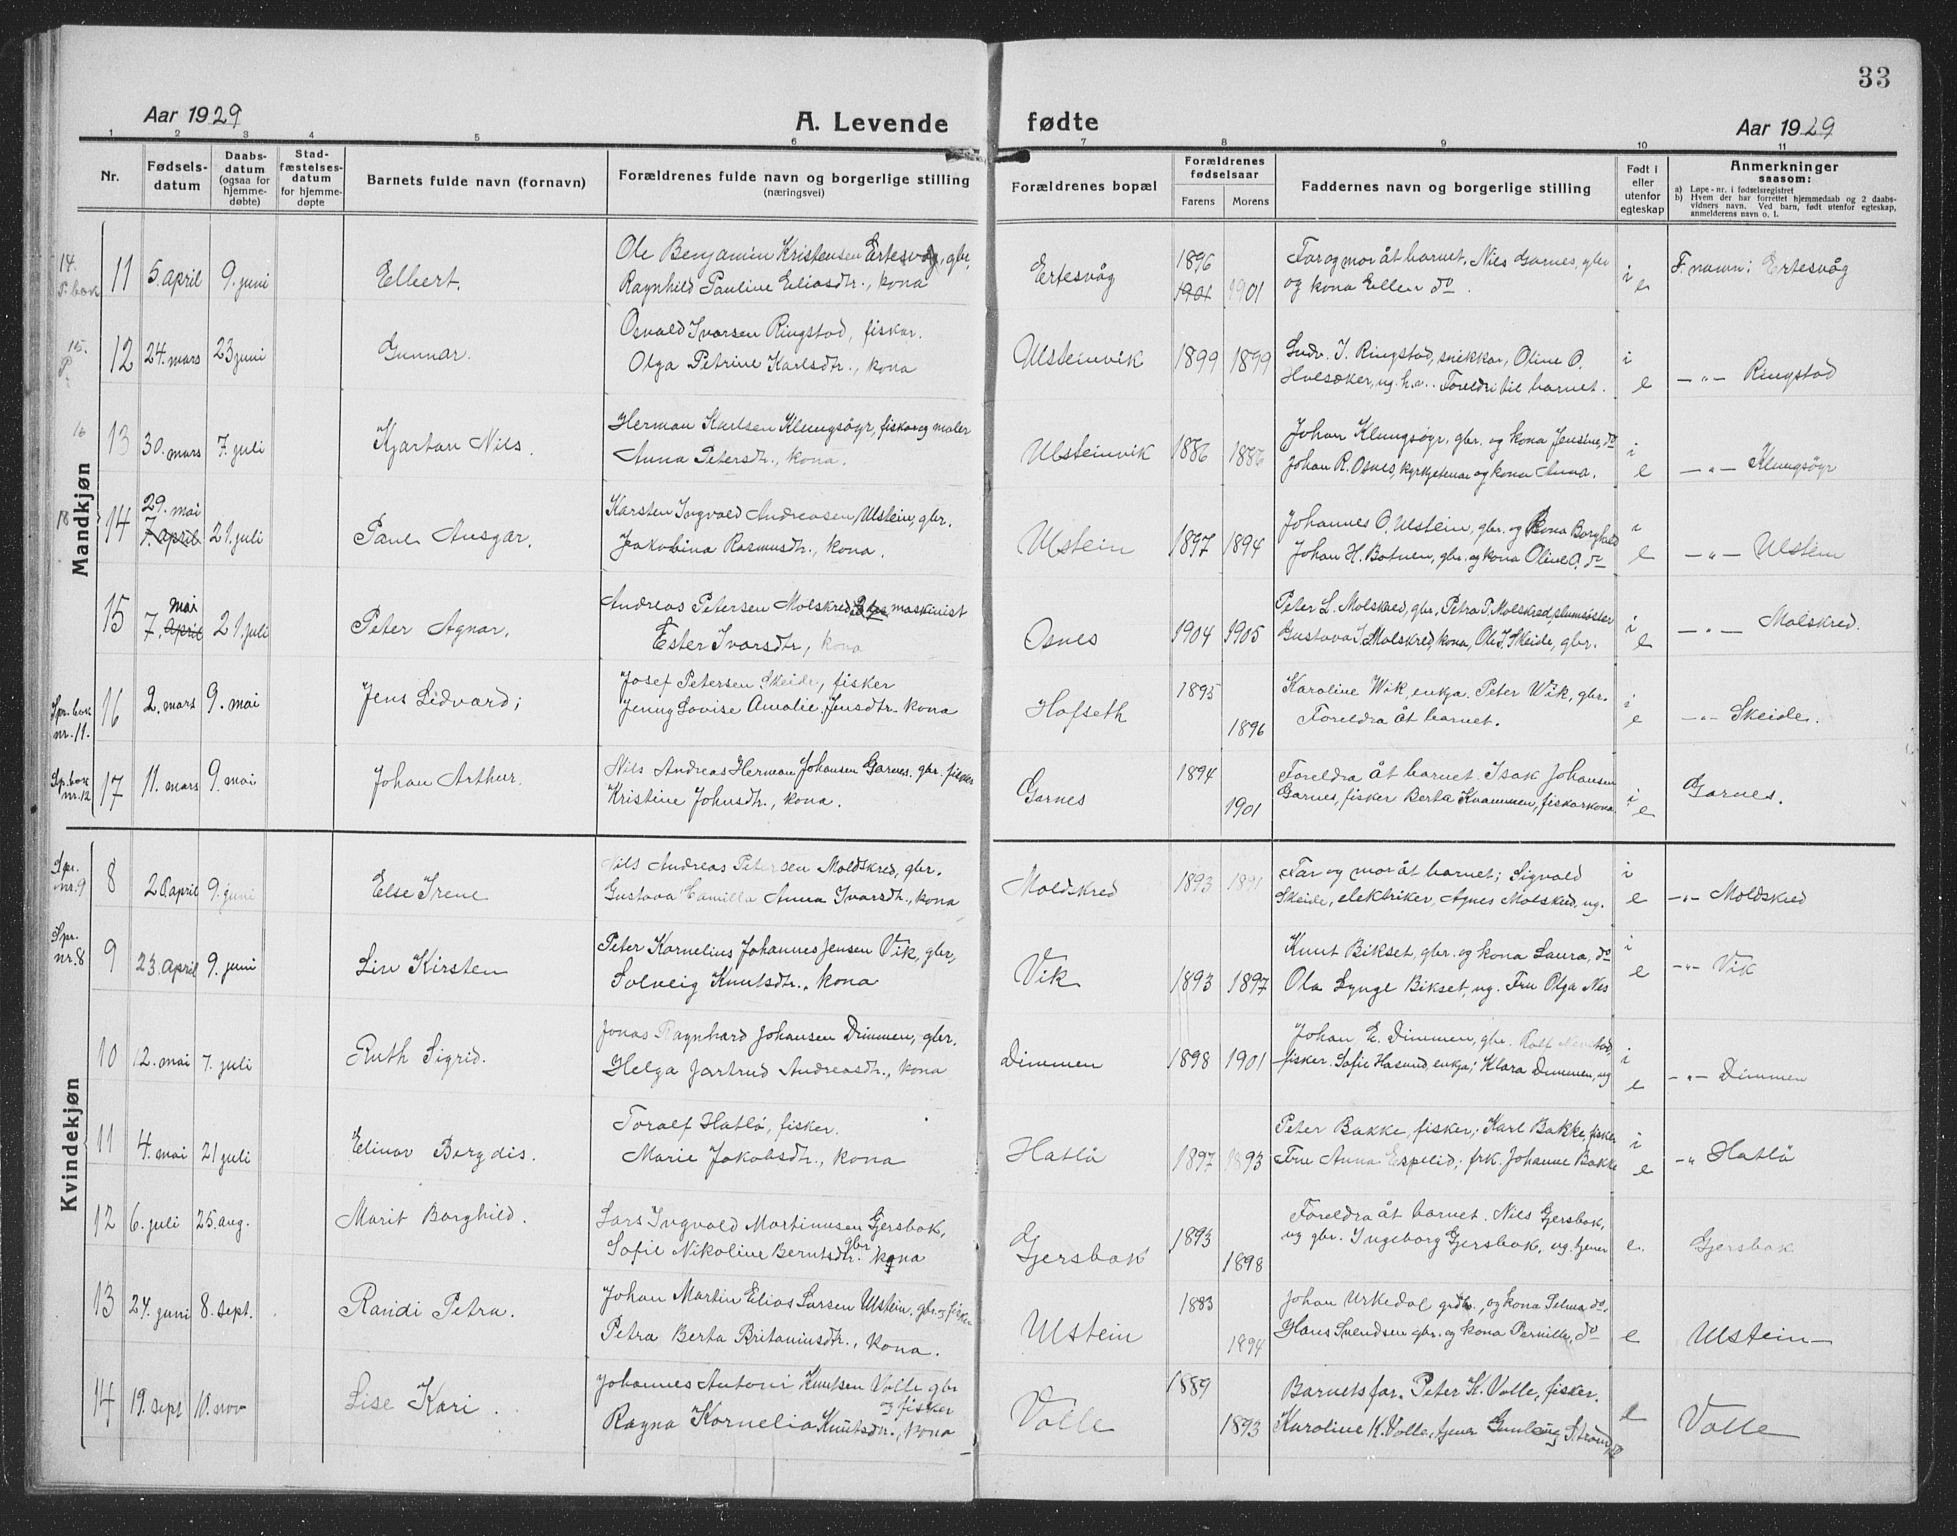 33
Aar 1929 A. Levende fødte Aar 1929
1 2 3 4 5 6 7 8 9 10 11
Nr. Fødselsdatum Daabsdatum (ogsaa for hjemmedøbte) Stadfæstelsesdatum for hjemmedøpte Barnets fulde navn (fornavn) Forældrenes fulde navn og borgerlige stilling (næringsvei) Forældrenes bopæl Forældrenes fødselsaar Farens Morens Faddernes navn og borgerlige stilling Født i eller utenfor egteskap Anmerkninger saasom:
a) Løpe-nr. i fødselsregistret
b) Hvem der har forrettet hjemmedaab og 2 daabsvidners navn. Ved barn, født utenfor egteskap, anmelderens navn o. l.
Mandkjøn
14. P. bok 11 5. april 9. juni Elbert. Ole Benjamin Kristensen Ertesvåg, gbr,
Ragnhild Pauline Eliasdtr., kona
Ertesvåg 1896 1901 1901 Far og mor åt barnet, Nils Garnes, gbr
og kona Ellen do. i e F. navn: Ertesvåg
15. P. 12 24. mars 23 juni Gunnar. Osvald Ivarsen Ringstad, fiskar.
Olga Petrine Karlsdtr., kona
Ulsteinvik 1899 1899 Gudr. I. Ringstad, snikkar, Oline O.
Holsæker, ug. h.v.. Foreldri til barnet. i e —"— Ringstad
16 13 30. mars 7. juli Kjartan Nils. Herman Karlsen Klungsöyr, fiskar og maler
Anna Petersdtr., kona.
Ulsteinvik 1886 1886 Johan Klungsøyr, gbr. og kona Jensine, do
Johan R. Osnes, kyrkjetenar og kona Anna. i e —"— Klungsöyr
18 14 29. mai 7. april 21. juli Paul Ansgar. Karsten Ingvald Andreasen Ulstein, gbr.
Jakobina Rasmusdtr., kona.
Ulstein 1897 1894 Johannes O. Ulstein, gbr. og kona Borghild
Johan H. Botnen, gbr. og kona Oline O. do i e —"— Ulstein
15 7. april mai 21. juli Peter Agnar. Andreas Petersen Molskred, maskinist
Ester Ivarsdtr, kona
Osnes 1904 1905 Peter L. Molskred, gbr, Petra P. Molskred, slumsöster
Gustava I. Molskred, kona, Ole I. Skeide, gbr. i e —"— Molskred.
Spr. bok nr. 11. 16 2. mars 9. mai Jens Lidvard; Josef Petersen Skeide, fisker
Jenny Lovise Amalie Jensdtr. kona
Hofseth 1895 1896 Karoline Wik, enkja. Peter Wik, gbr.
Foreldra åt barnet. i e —"— Skeide.
Sp. bok nr. 12 17 11. mars 9. mai Johan Arthur. Nils Andreas Herman Johansen Garnes. gbr. fisker
Kristine Johnsdtr., kona.
Garnes 1894 1901 Foreldra åt barnet. Isak Johansen
Garnes, fisker Berta Kvammen, fiskarkona i e Garnes.
Kvindekjøn
Spr. nr. 9 8 20. april 9. juni Else Irene Nils Andreas Petersen Moldskred, gbr.
Gustava Camilla Anna Ivarsdtr., kona
Moldskred 1893 1891 Far og mor åt barnet; Sigvald
Skeide, elektriker, Agnes Molskred, ug. i e —"— Moldskred
Spr. nr. 8 9 23. april 9. juni Liv Kirsten Peter Kornelius Johannes Jensen Vik, gbr,
Solveig Knutsdtr., kona
Vik 1893 1897 Knut Bikset, gbr. og kona Laura, do
Ola Lynge Bikset, ug. Fru Olga Nes i e —"— Vik
10 12. mai 7. juli Ruth Sigrid. Jonas Ragnhard Johansen Dimmen, gbr.
Helga Jartrud Andreasdtr., kona
Dimmen 1898 1901 Johan E. Dimmen, gbr. Rolf
fisker. Sofie Hasund, enkja; Klara Dimmen, ug i e —"— Dimmen
11 4. mai 21 juli Elinor Bergdis. Toralf Hatlö, fisker.
Marie Jakobsdtr., kona
Hatlö 1897 1893 Peter Bakke, fisker; Karl Bakke, fisker
Fru Anna Espelid; frk. Johanne Bakke i e —" Hatlö
12 6. juli 25. aug. Marit Borghild. Lars Ingvald Martinusen Gjersbak,
Sofie Nikoline Berntsdtr. gbr. kona
Gjersbak 1893 1898 Foreldra åt barnet. Nils Gjersbak,
ug gbr. Ingeborg Gjersbak, ug. tjener e. Gjersbak
13 24. juni 8. sept. Randi Petra. Johan Martin Elias Larsen Ulstein. gbr. og fisker
Petra Berta Britaniusdtr., kona.
Ulstein 1883 1894 Johan Urkedal grdbr., og kona Selma do.
Hans Svendsen gbr. og kona Pernille, do e Ulstein—
14 19. sept 10. nov Lise Kari. Johannes Antoni Knutsen Volle gbr
og fisker
Ragna Kornelia Knutsdtr., kona
Volle 1889 1893 Barnets far. Peter K. Volle, fisker.
Karoline K. Volle, tjener Gunlaug e Volle